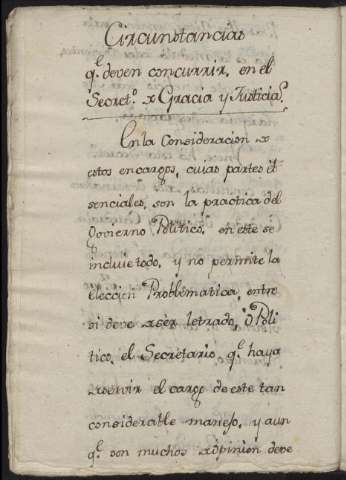 Circunstancias
q.e deven concurrir, en el
Secret.o de Gracia y Justicia.
En la Consideracion de
estos encargos, cuias partes es-
senciales, son la practica del
Govierno Politico, en este se
incluie todo, y no permite la
eleccion Problematica, entre
si deve de sèr letrado, ò Poli
tico, el Secretario, q.e haya
de servir el cargo de este tan
considerable manejo, y aun
q.e son muchos de opinion deve